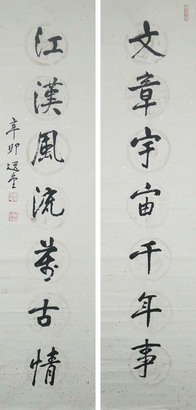 文章宇宙千年事
江漢風流萬古情
辛卯選堂